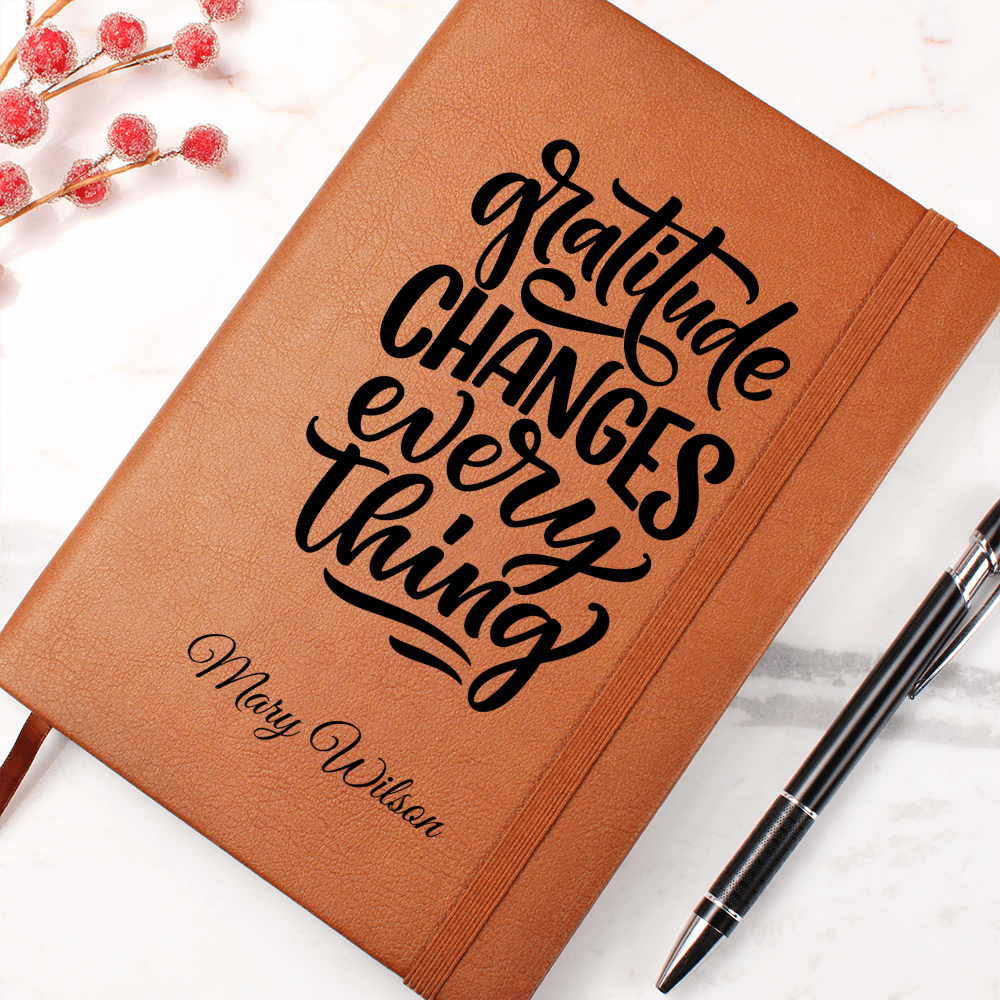 gratitude
CHANGES
every
thing
Mary Wilson